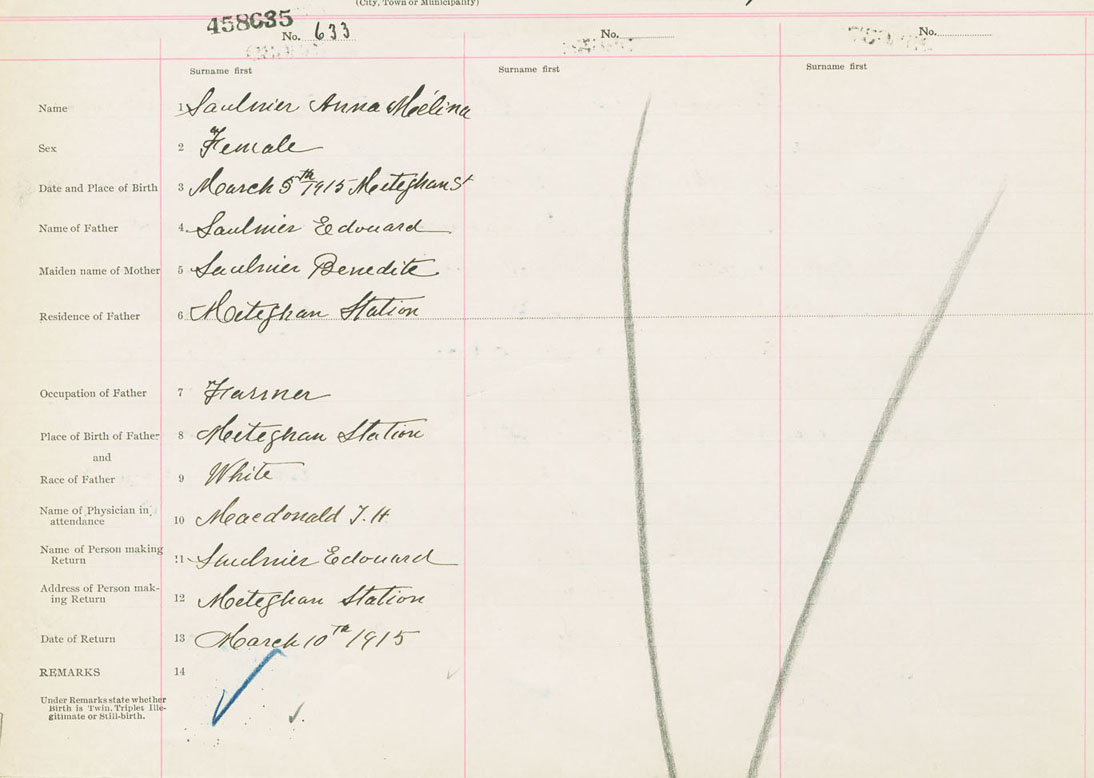 (City, Town or Municipality)
458635
No. 633
No.
No.
Surname first
Surname first
Surname first
Name 1 Saulnier Anna Mélina
Sex 2 Female
Date and Place of Birth 3 March 5th 1915 Meteghan St
Name of Father 4 Saulnier Edouard
Maiden name of Mother 5 Saulnier Benedite
Residence of Father 6 Meteghan Station
Occupation of Father 7 Farmer
Place of Birth of Father 8 Meteghan Station
and
Race of Father 9 White
Name of Physician in
attendance 10 Macdonald T. H.
Name of Person making
Return 11 Saulnier Edouard
Address of Person mak-
ing Return 12 Meteghan Station
Date of Return 13 March 10th 1915
REMARKS 14
Under Remarks state whether
Birth is Twin, Triplet, Ille-
gitimate or Still-birth.